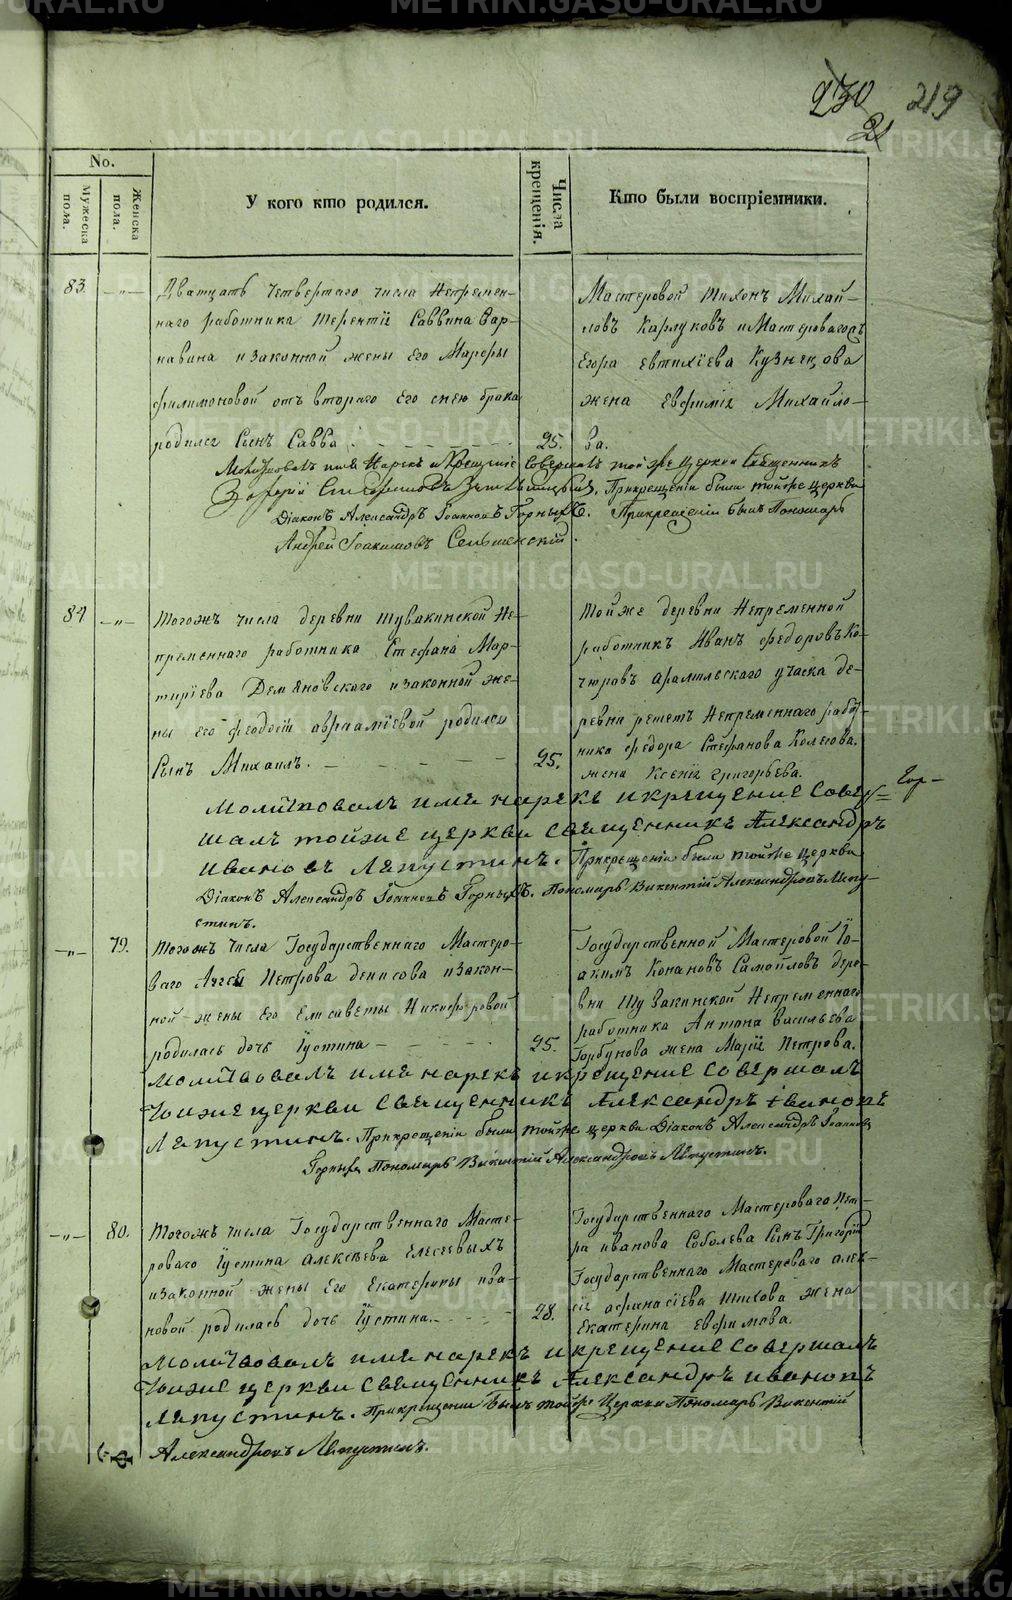 230 219
21
No.
Мужеска пола.
Женска пола.
У кого кто родился.
Числа крещенія.
Кто были воспріемники.
83.
Дватцать четвертаго числа Непремен-
наго работника Терентiя Саввина Вар-
навина изаконной жены Его Марѳы
Филимоновой отъ втораго Его снею брака
родился Сынъ Савва.
25.
Мастеровой Тихонъ Михай-
ловъ Карлуковъ и Мастероваго
Егора Евтихiева Кузнецова
жена Евфимiя Михайло-
ва.
Молитвовалъ имя Нарекъ и Крещенiе Совершалъ тойже Церкви Священникъ
Прикрещенiи были тойже церкви
Дiаконъ Александръ Iоанновъ Горныхъ. Прикрещенiи былъ Пономарь
Андрей Iоакимовъ
84
Тогожъ числа деревни Шувакинской Не-
пременнаго работника Стефана Мар-
тирiева Демяновскаго изаконной же-
ны его Феодосiи Авраамiевой родился
Сынъ Михаилъ.
25.
Тойже деревни Непременной
работникъ Иванъ Федоровъ Ко-
Арамильскаго учаска де-
ревни решетъ Непременнаго работ-
ника Федора Стефанова
жена Ксенiя Григорьева.
Молитвовалъ имя нарекъ икрещение совер-
шалъ тойже церкви священникъ Александръ
Ивановъ Ляпустинъ. Прикрещенiи были тойже церкви
Дiаконъ Александръ Iоанновъ Горныхъ. Пономарь Викентiй Александровъ Ляпу-
стинъ.
79.
Тогожъ числа Государственнаго Мастеро-
ваго Петрова Денисова изакон-
ной жены Его Елисаветы Никифоровой
родилась дочь Iустина
25.
Государственной Мастеровой Iо-
акимъ Конановъ Самойловъ дере-
вни Шувакинской Непременнаго
работника Антона Васильева
Горбунова жена Марiя Петрова.
Молитвовалъ имя нарекъ икрещение совершалъ
тойже церкви священникъ Александръ Ивановъ
Ляпустинъ. Прикрещенiи были тойже церкви Дiаконъ Александръ Iоанновъ
Горныхъ Пономарь Викентiй Александровъ Ляпустинъ.
80.
Тогожъ числа Государственнаго Масте-
роваго Iустина Алексѣева Елесеевыхъ
изаконной жены Его Екатерины Ива-
новой родилась дочь Iустина.
28.
Государственнаго Мастероваго Пет-
ра Иванова Соболева Сынъ Григорiй
Государственнаго Мастероваго Алек-
сiя Афанасiева Шихова жена
Екатерина Евфимова.
Молитвовалъ имя нарекъ икрещение совершалъ
тойже церкви священникъ Александръ Ивановъ
Ляпустинъ. Прикрещенiи Былъ тойже Церкви Пономарь Викентiй
Александровъ Ляпустинъ.
METRIKI.GASO-URAL.RU